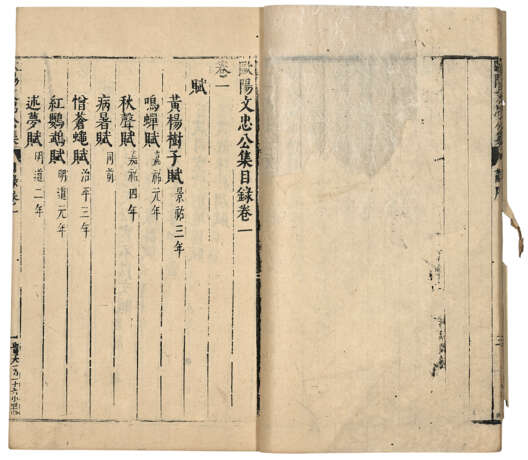 歐陽文忠公集目錄卷一
卷一
賦
黃楊樹子賦 景祐三年
鳴蟬賦 嘉祐元年
秋聲賦 嘉祐四年
病暑賦 同前
憎蒼蠅賦 治平三年
紅鸚鵡賦 明道元年
述夢賦 明道二年
目錄卷一